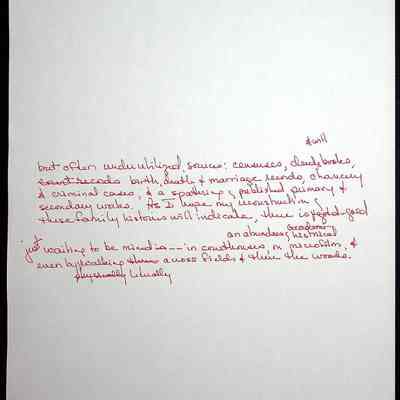 & will
but often underutilized, sources: censuses, deed books,
court records birth, death & marriage records, chancery
& criminal cases, & a spattering of published primary &
secondary works. As I hope my reconstruction of
these family histories will indicate, there is gold
academic
an abundance historical
just waiting to be mined -- in courthouses, on microfilm, &
even by walking across fields & thru the woods.
physically literally